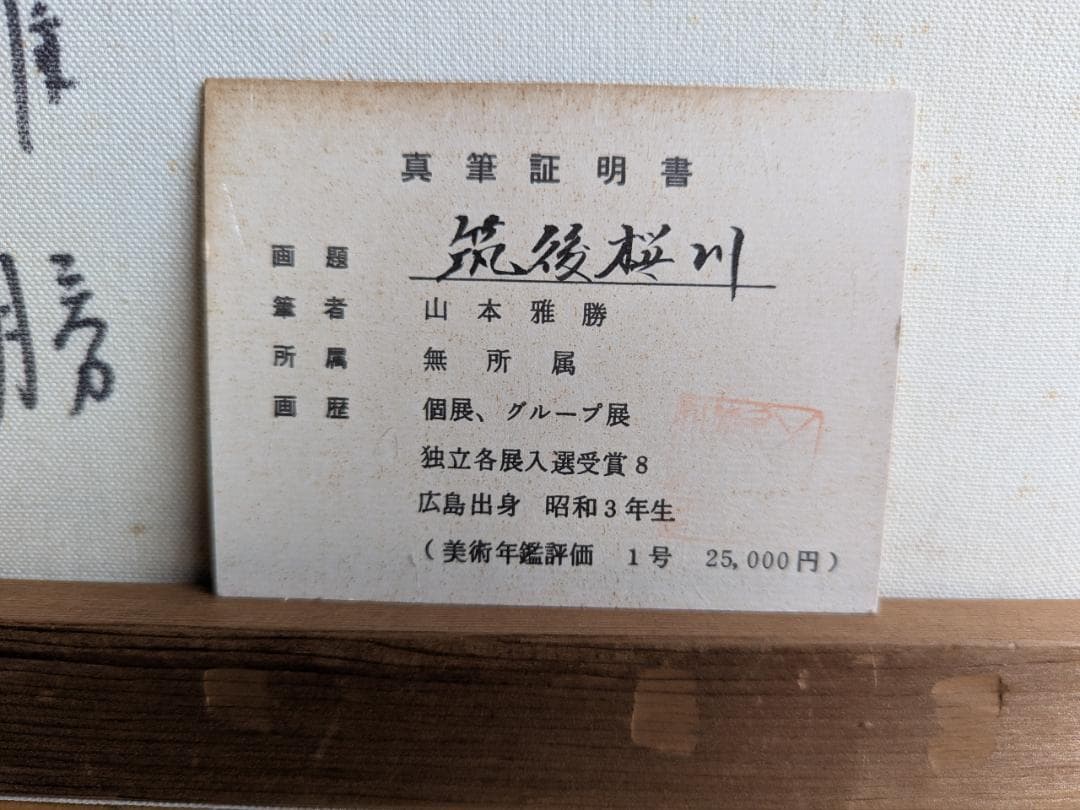 真筆証明書
画題 筑後桜川
筆者 山本雅勝
所属 無所属
画歴 個展、グループ展
独立各展入選受賞8
広島出身 昭和3年生
(美術年鑑評価 1号 25,000円)
雅
勝